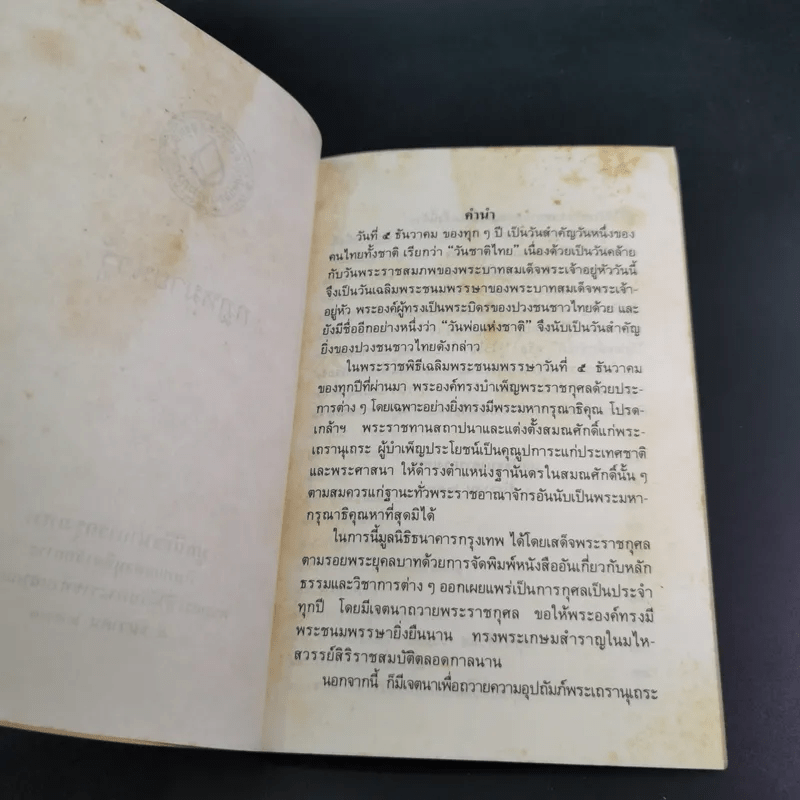 คำนำ
วันที่ ๕ ธันวาคม ของทุก ๆ ปี เป็นวันสำคัญวันหนึ่งของ
คนไทยทั้งชาติ เรียกว่า “วันชาติไทย” เนื่องด้วยเป็นวันคล้าย
กับวันพระราชสมภพของพระบาทสมเด็จพระเจ้าอยู่หัววันนี้
จึงเป็นวันเฉลิมพระชนมพรรษาของพระบาทสมเด็จพระเจ้า-
อยู่หัว พระองค์ผู้ทรงเป็นพระบิดรของปวงชนชาวไทยด้วย และ
ยังมีชื่ออีกอย่างหนึ่งว่า “วันพ่อแห่งชาติ” จึงนับเป็นวันสำคัญ
ยิ่งของปวงชนชาวไทยดังกล่าว
ในพระราชพิธีเฉลิมพระชนมพรรษาวันที่ ๕ ธันวาคม
ของทุกปีที่ผ่านมา พระองค์ทรงบำเพ็ญพระราชกุศลด้วยประ-
การต่าง ๆ โดยเฉพาะอย่างยิ่งทรงมีพระมหากรุณาธิคุณ โปรด-
เกล้าฯ พระราชทานสถาปนาและแต่งตั้งสมณศักดิ์แก่พระ-
เถรานุเถระ ผู้บำเพ็ญประโยชน์เป็นคุณูปการะแก่ประเทศชาติ
และพระศาสนา ให้ดำรงตำแหน่งฐานันดรในสมณศักดิ์นั้น ๆ
ตามสมควรแก่ฐานะทั่วพระราชอาณาจักรอันนับเป็นพระมหา-
กรุณาธิคุณหาที่สุดมิได้
ในการนี้มูลนิธิธนาคารกรุงเทพ ได้โดยเสด็จพระราชกุศล
ตามรอยพระยุคลบาทด้วยการจัดพิมพ์หนังสืออันเกี่ยวกับหลัก
ธรรมและวิชาการต่าง ๆ ออกเผยแพร่เป็นการกุศลเป็นประจำ
ทุกปี โดยมีเจตนาถวายพระราชกุศล ขอให้พระองค์ทรงมี
พระชนมพรรษายิ่งยืนนาน ทรงพระเกษมสำราญในมไห-
สวรรย์สิริราชสมบัติตลอดกาลนาน
นอกจากนี้ ก็มีเจตนาเพื่อถวายความอุปถัมภ์พระเถรานุเถระ